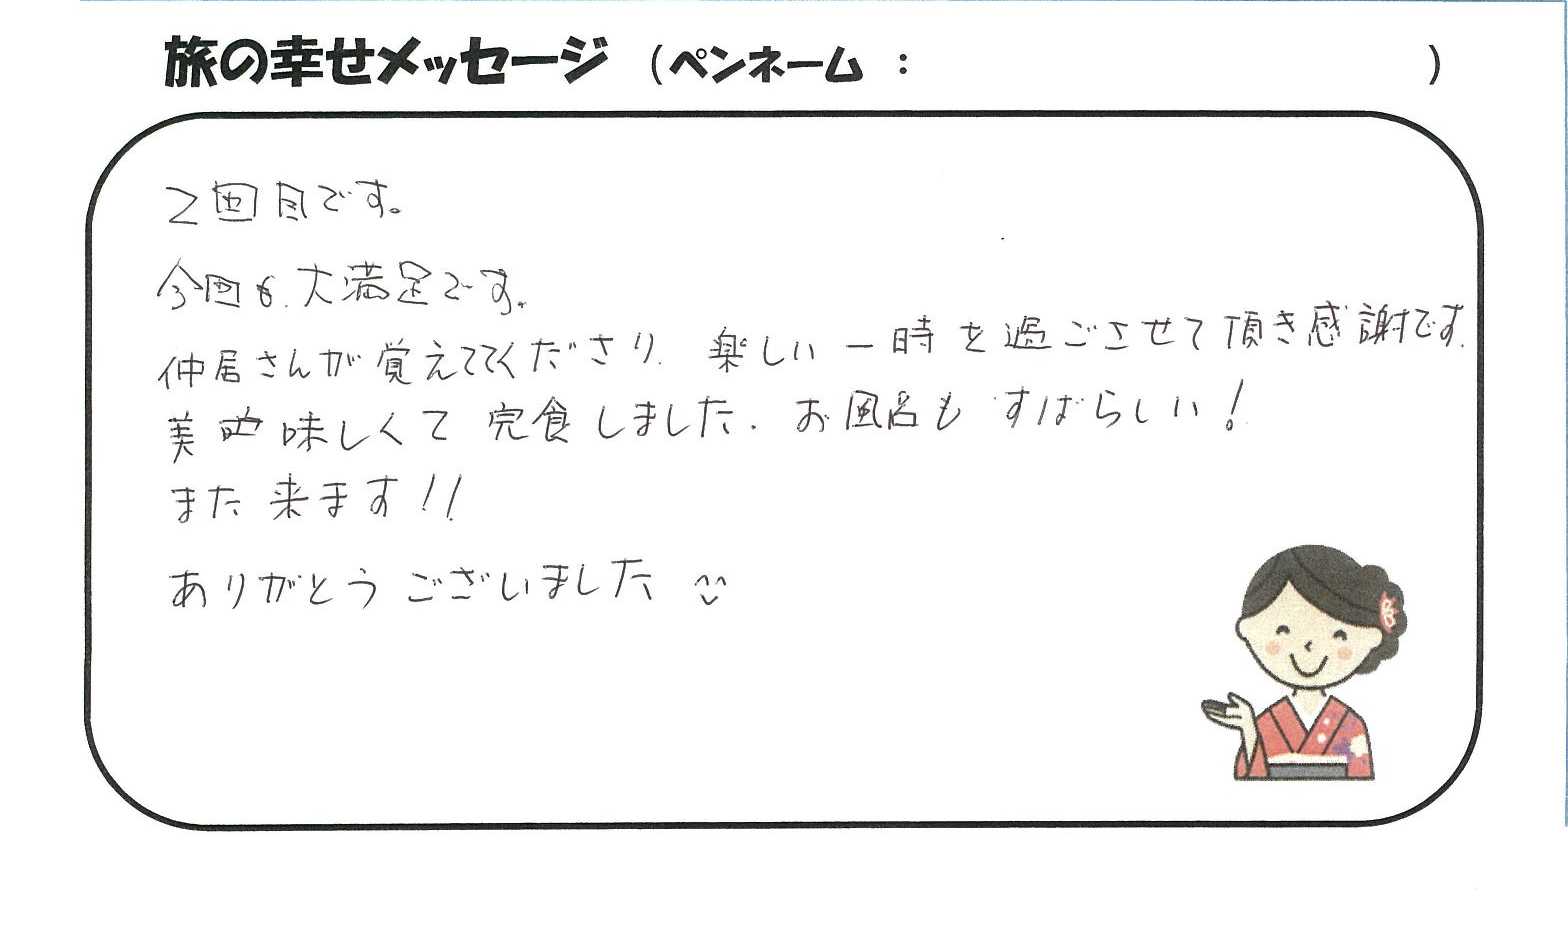 旅の幸せメッセージ （ペンネーム ： ）
2回目です。
今回も、大満足です。
仲居さんが覚えててくださり、楽しい一時を過ごさせて頂き感謝です。
美味しくて完食しました。お風呂もすばらしい！
また来ます！！
ありがとうございました ^^